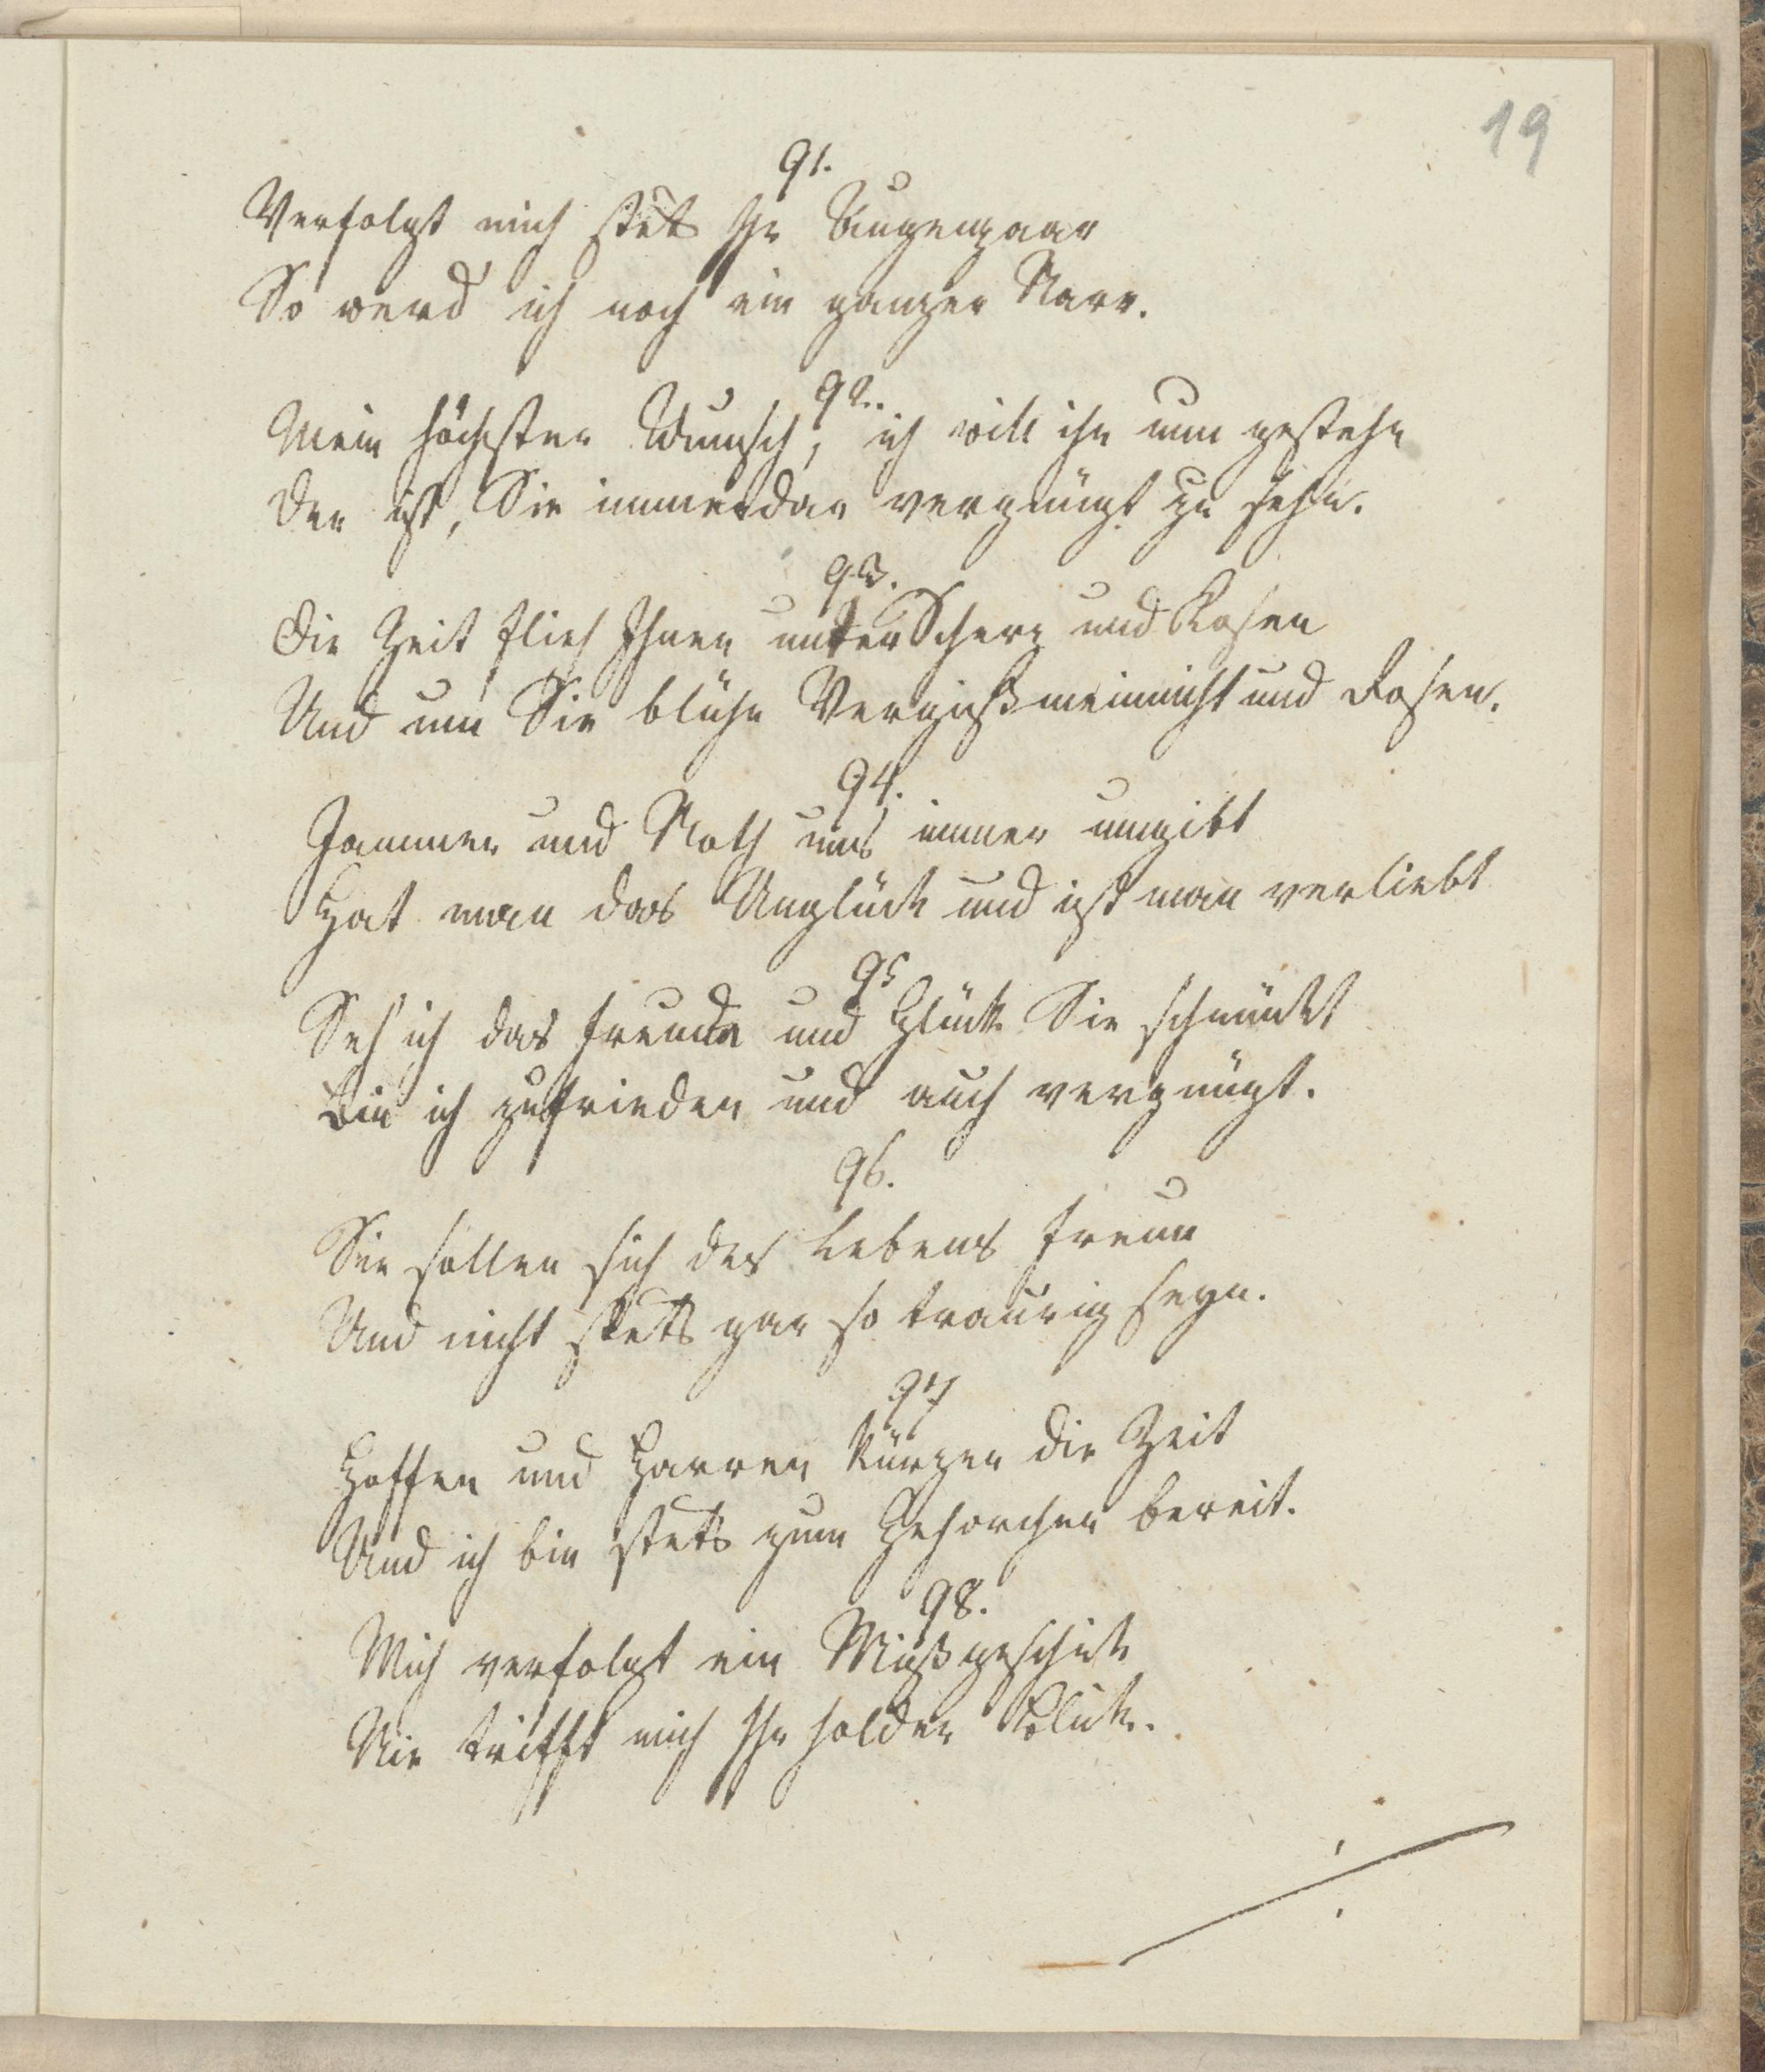 19
91.
Verfolgt mich stets Ihr Augenpaar
So werd' ich noch ein ganzer Narr.
92.
Mein höchster Wunsch, ich will ihn nun gestehn
Der ist, Sie immerdar vergnügt zu sehn.
93.
Die Zeit flieh Ihnen unter Scherz und Kosen
Und um Sie blühn Vergißmeinnicht und Rosen.
94.
Jammer und Noth uns immer umgibt
Hat man das Unglück und ist man verliebt
95
Seh' ich das Freude und Glück Sie schmückt
Bin ich zufrieden und auch vergnügt.
96.
Sie sollen sich des Lebens freun
Und nicht stets gar so traurig seyn.
97
Hoffen und Harren kürzen die Zeit
Und ich bin stets zum Gehorchen bereit.
98.
Mich verfolgt ein Mißgeschick
Nie trifft mich Ihr holder Blick.